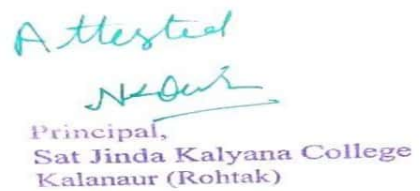 Attested
Principal,
Sat Jinda Kalyana College
Kalanaur (Rohtak)